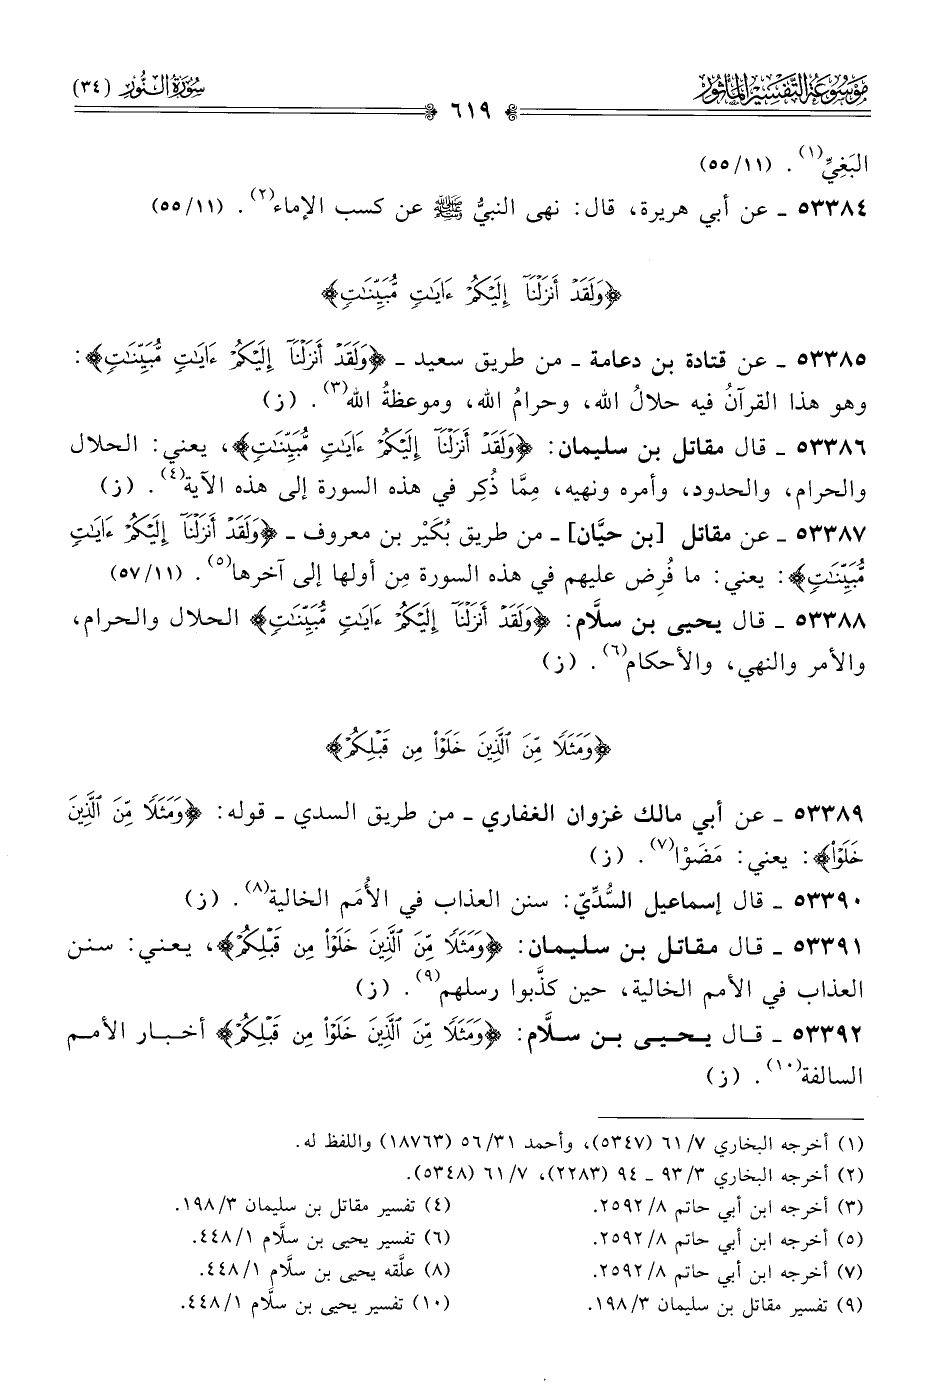 موسوعة التفسير المأثور
سورة النور (٣٤)
٦١٩
البَغِيِّ(١). (١١/٥٥)
٥٣٣٨٤ ـ عن أبي هريرة، قال: نهى النبيُّ ﷺ عن كسب الإماء(٢). (١١/٥٥)
﴿وَلَقَدْ أَنزَلْنَآ إِلَيْكُمْ ءَايَـٰتٍ مُّبَيِّنَـٰتٍ﴾
٥٣٣٨٥ ـ عن قتادة بن دعامة ـ من طريق سعيد ـ ﴿وَلَقَدْ أَنزَلْنَآ إِلَيْكُمْ ءَايَـٰتٍ مُّبَيِّنَـٰتٍ﴾:
وهو هذا القرآنُ فيه حلالُ الله، وحرامُ الله، وموعظةُ الله(٣). (ز)
٥٣٣٨٦ ـ قال مقاتل بن سليمان: ﴿وَلَقَدْ أَنزَلْنَآ إِلَيْكُمْ ءَايَـٰتٍ مُّبَيِّنَـٰتٍ﴾، يعني: الحلال
والحرام، والحدود، وأمره ونهيه، مِمَّا ذُكِر في هذه السورة إلى هذه الآية(٤). (ز)
٥٣٣٨٧ ـ عن مقاتل [بن حيَّان] ـ من طريق بُكَيْر بن معروف ـ ﴿وَلَقَدْ أَنزَلْنَآ إِلَيْكُمْ ءَايَـٰتٍ
مُّبَيِّنَـٰتٍ﴾: يعني: ما فُرِض عليهم في هذه السورة مِن أولها إلى آخرها(٥). (١١/٥٧)
٥٣٣٨٨ ـ قال يحيى بن سلَّام: ﴿وَلَقَدْ أَنزَلْنَآ إِلَيْكُمْ ءَايَـٰتٍ مُّبَيِّنَـٰتٍ﴾ الحلال والحرام،
والأمر والنهي، والأحكام(٦). (ز)
﴿وَمَثَلًا مِّنَ ٱلَّذِينَ خَلَوْا۟ مِن قَبْلِكُمْ﴾
٥٣٣٨٩ ـ عن أبي مالك غزوان الغفاري ـ من طريق السدي ـ قوله: ﴿وَمَثَلًا مِّنَ ٱلَّذِينَ
خَلَوْا۟﴾: يعني: مَضَوْا(٧). (ز)
٥٣٣٩٠ ـ قال إسماعيل السُّدِّيّ: سنن العذاب في الأُمَم الخالية(٨). (ز)
٥٣٣٩١ ـ قال مقاتل بن سليمان: ﴿وَمَثَلًا مِّنَ ٱلَّذِينَ خَلَوْا۟ مِن قَبْلِكُمْ﴾، يعني: سنن
العذاب في الأمم الخالية، حين كذَّبوا رسلهم(٩). (ز)
٥٣٣٩٢ ـ قال يحيى بن سلَّام: ﴿وَمَثَلًا مِّنَ ٱلَّذِينَ خَلَوْا۟ مِن قَبْلِكُمْ﴾ أخبار الأمم
السالفة(١٠). (ز)
(١) أخرجه البخاري ٧/ ٦١ (٥٣٤٧)، وأحمد ٣١/ ٥٦ (١٨٧٦٣) واللفظ له.
(٢) أخرجه البخاري ٣/ ٩٣ ـ ٩٤ (٢٢٨٣)، ٧/ ٦١ (٥٣٤٨).
(٣) أخرجه ابن أبي حاتم ٨/ ٢٥٩٢. (٤) تفسير مقاتل بن سليمان ٣/ ١٩٨.
(٥) أخرجه ابن أبي حاتم ٨/ ٢٥٩٢. (٦) تفسير يحيى بن سلَّام ١/ ٤٤٨.
(٧) أخرجه ابن أبي حاتم ٨/ ٢٥٩٢. (٨) علَّقه يحيى بن سلَّام ١/ ٤٤٨.
(٩) تفسير مقاتل بن سليمان ٣/ ١٩٨. (١٠) تفسير يحيى بن سلَّام ١/ ٤٤٨.